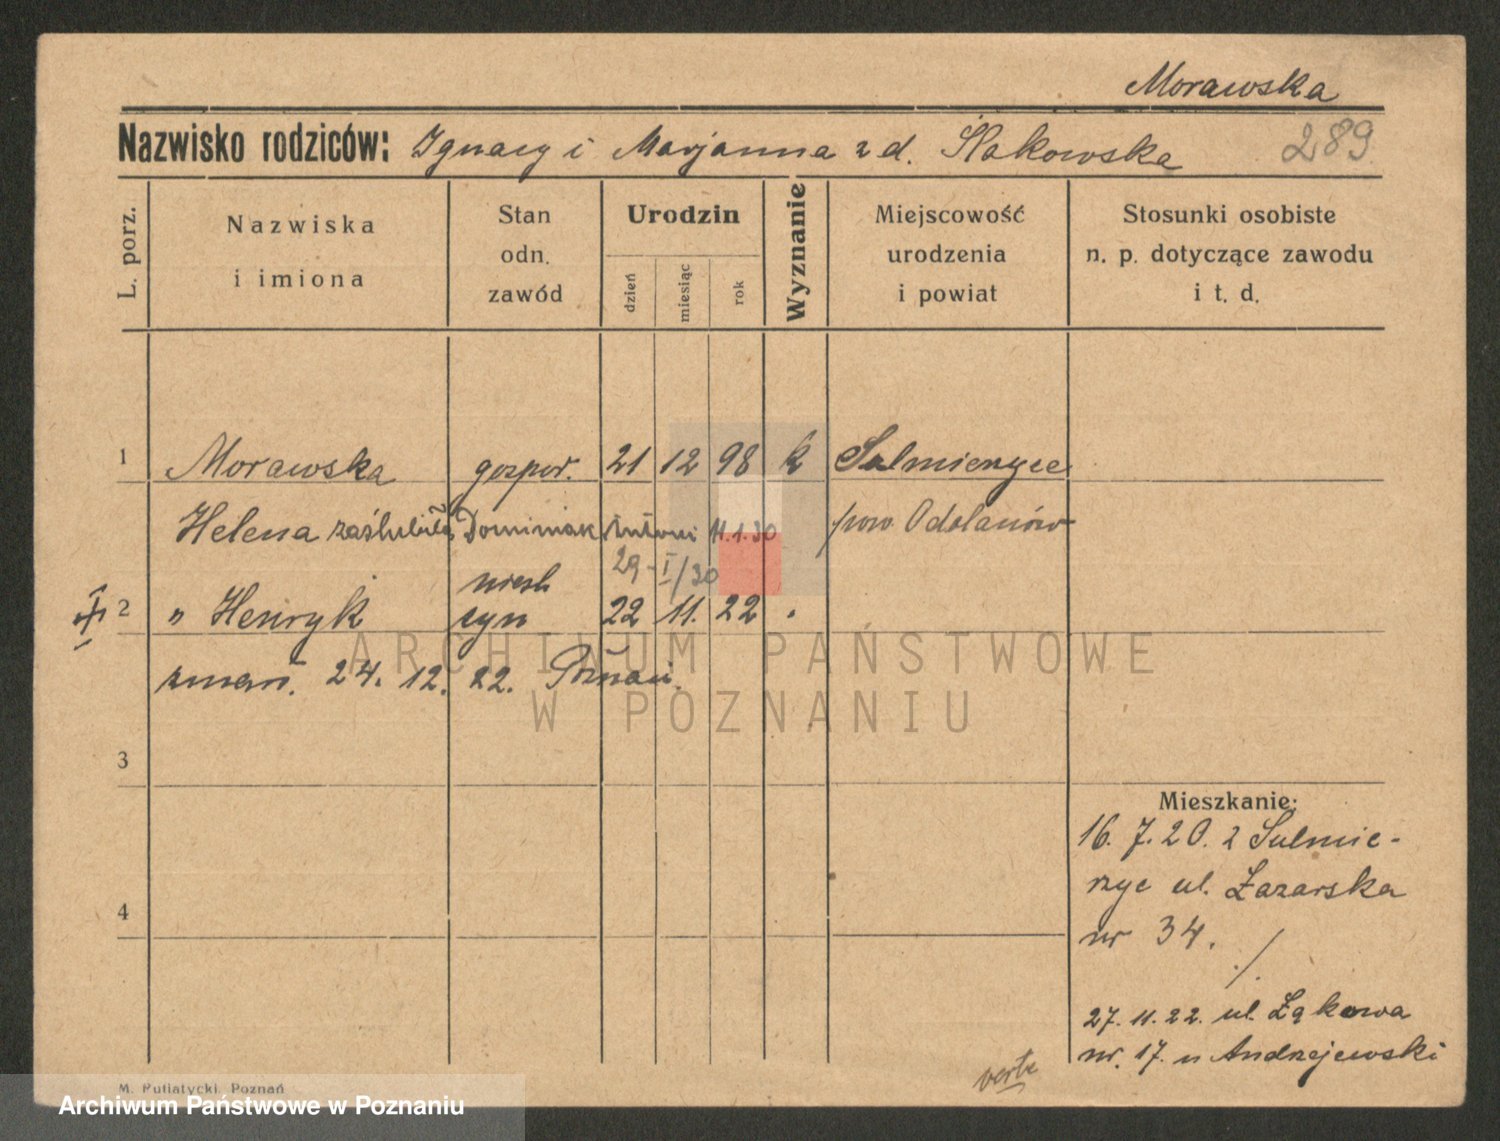 Morawska
Nazwisko rodziców: Ignacy i Marjanna z d. Słakowska 289
L. porz.
Nazwiska
i imiona
Stan
odn.
zawód
Urodzin
dzień
miesiąc
rok
Wyznanie
Miejscowość
urodzenia
i powiat
Stosunki osobiste
n. p. dotyczące zawodu
i t. d.
1 Morawska gospod. 21 12 98 k Sulmierzyce
Helena zaślubiła Dominiak Antoni 11.1.30 pow. Odolanów
29-I/30
nieśl
2 " Henryk syn 22 11. 22
zmarł. 24. 12. 22. Poznań.
3
Mieszkanie:
16. 7. 20. z Sulmie-
rzyc ul. Łazarska
4
nr 34. ./.
27. 11. 22. ul. Łąkowa
nr. 17. u Andrzejewski
verte
M. Putiatycki, Poznań
ARCHIWUM PAŃSTWOWE
W POZNANIU
Archiwum Państwowe w Poznaniu